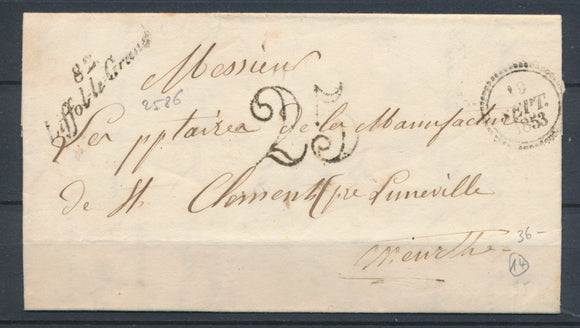 82
Liffol-le-Grand
Messieurs
2586
25
9
SEPT.
1853
Les pptaires de la Manufacture
de St Clement pre Luneville
36-
Meurthe
14